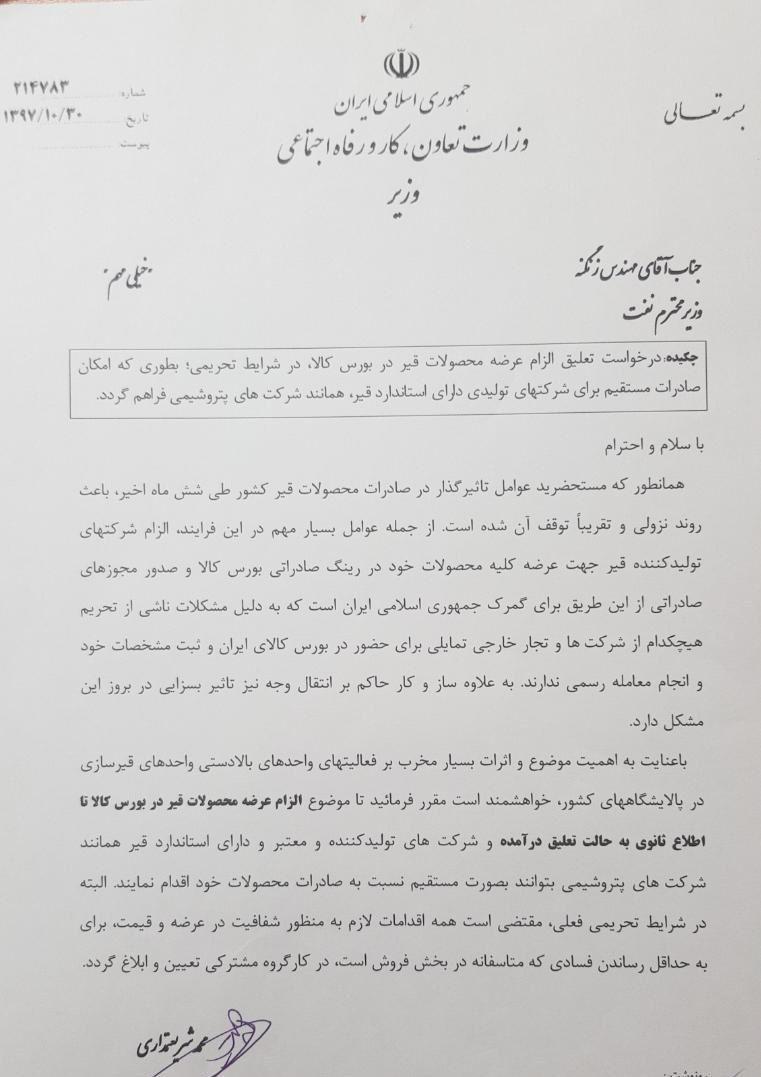 ۲
بسمه تعالی
جمهوری اسلامی ایران
وزارت تعاون، کار و رفاه اجتماعی
وزیر
شماره: ۲۱۴۷۸۳
تاریخ: ۱۳۹۷/۱۰/۳۰
پیوست:
جناب آقای مهندس زنگنه
"خیلی مهم"
وزیر محترم نفت
چکیده: درخواست تعلیق الزام عرضه محصولات قیر در بورس کالا، در شرایط تحریمی؛ بطوری که امکان
صادرات مستقیم برای شرکتهای تولیدی دارای استاندارد قیر، همانند شرکت های پتروشیمی فراهم گردد.
با سلام و احترام
همانطور که مستحضرید عوامل تاثیرگذار در صادرات محصولات قیر کشور طی شش ماه اخیر، باعث
روند نزولی و تقریباً توقف آن شده است. از جمله عوامل بسیار مهم در این فرایند، الزام شرکتهای
تولیدکننده قیر جهت عرضه کلیه محصولات خود در رینگ صادراتی بورس کالا و صدور مجوزهای
صادراتی از این طریق برای گمرک جمهوری اسلامی ایران است که به دلیل مشکلات ناشی از تحریم
هیچکدام از شرکت ها و تجار خارجی تمایلی برای حضور در بورس کالای ایران و ثبت مشخصات خود
و انجام معامله رسمی ندارند. به علاوه ساز و کار حاکم بر انتقال وجه نیز تاثیر بسزایی در بروز این
مشکل دارد.
باعنایت به اهمیت موضوع و اثرات بسیار مخرب بر فعالیتهای واحدهای بالادستی واحدهای قیرسازی
در پالایشگاههای کشور، خواهشمند است مقرر فرمائید تا موضوع الزام عرضه محصولات قیر در بورس کالا تا
اطلاع ثانوی به حالت تعلیق درآمده و شرکت های تولیدکننده و معتبر و دارای استاندارد قیر همانند
شرکت های پتروشیمی بتوانند بصورت مستقیم نسبت به صادرات محصولات خود اقدام نمایند. البته
در شرایط تحریمی فعلی، مقتضی است همه اقدامات لازم به منظور شفافیت در عرضه و قیمت، برای
به حداقل رساندن فسادی که متاسفانه در بخش فروش است، در کارگروه مشترکی تعیین و ابلاغ گردد.
محمد شریعتمداری